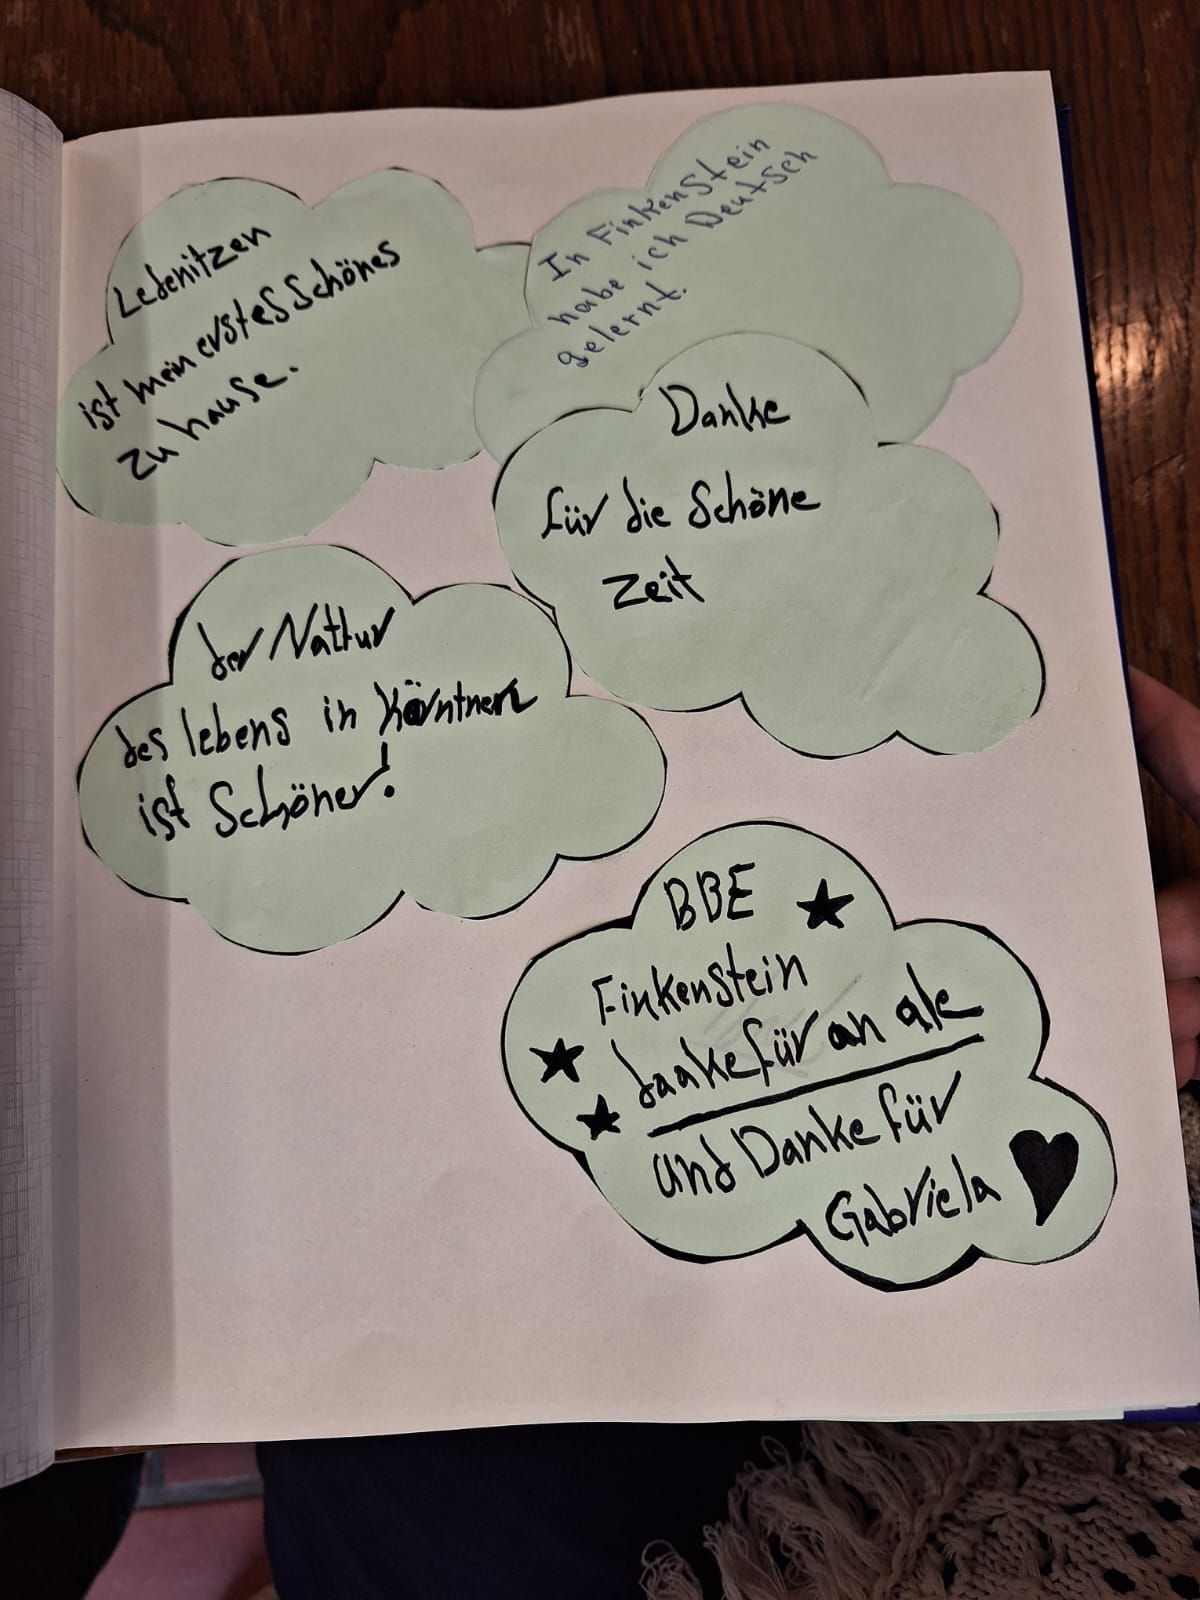 Ledenitzen
ist mein erstes schönes
zu hause.
In Finkenstein
habe ich Deutsch
gelernt.
Danke
für die Schöne
Zeit
der Nattur
des lebens in Körntnern
ist Schöner!
BBE
Finkenstein
daakefür an ale
und Danke für
Gabriela